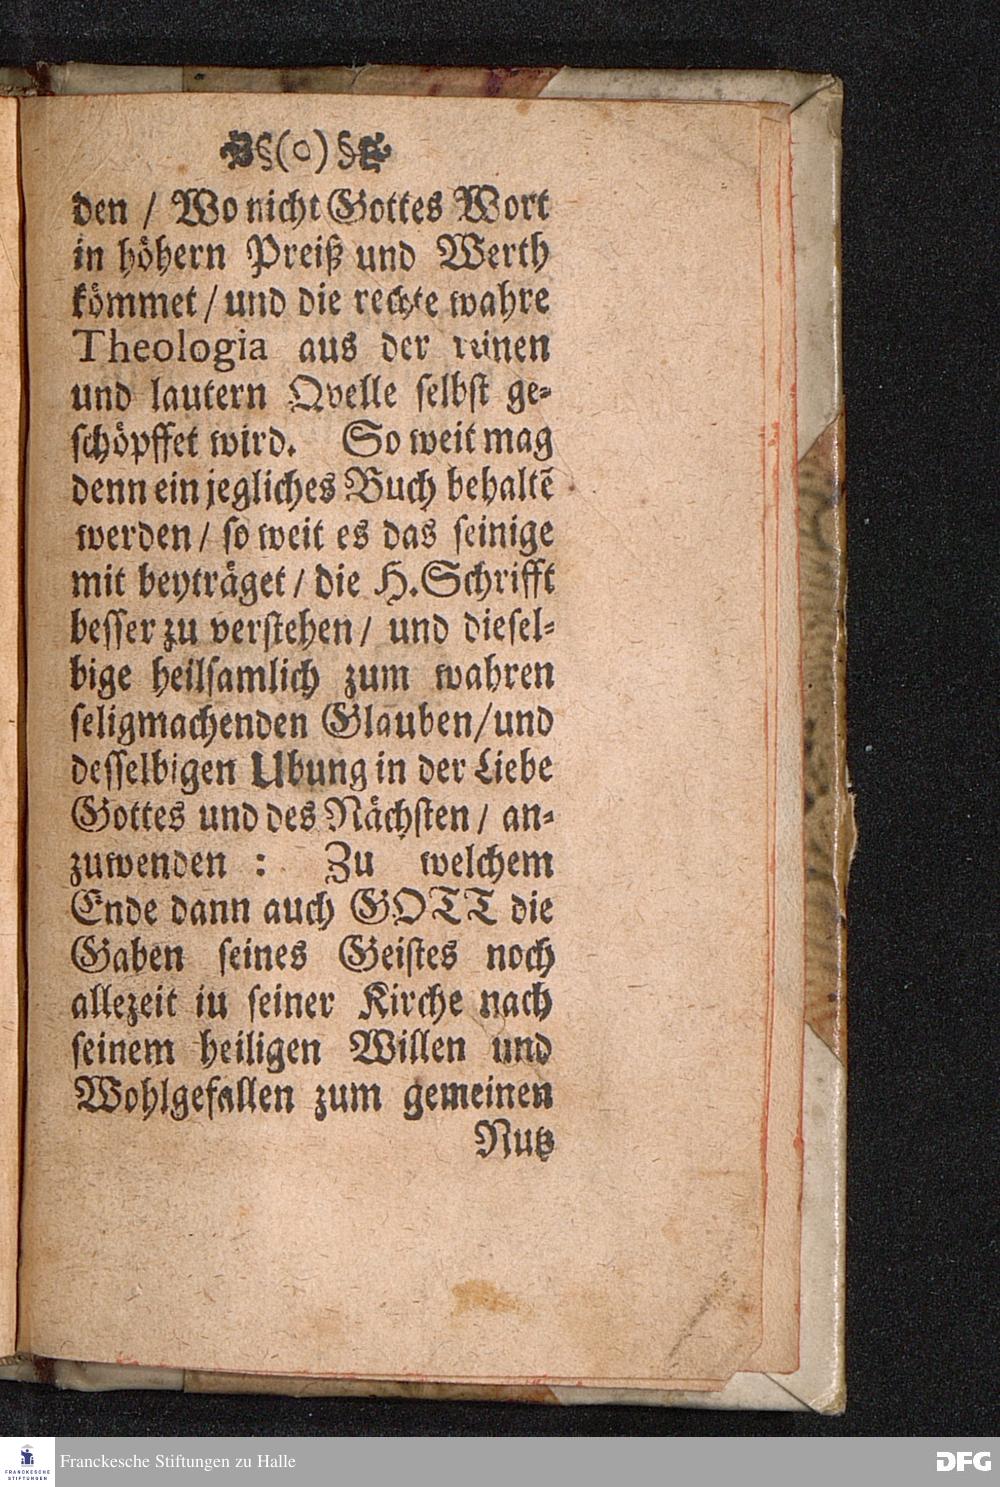 §(o)§
den / Wo nicht Gottes Wort
in höhern Preiß und Werth
kömmet / und die rechte wahre
Theologia aus der reinen
und lautern Qvelle selbst ge-
schöpffet wird. So weit mag
denn ein jegliches Buch behaltē
werden / so weit es das seinige
mit beyträget / die H. Schrifft
besser zu verstehen / und diesel-
bige heilsamlich zum wahren
seligmachenden Glauben / und
desselbigen Ubung in der Liebe
Gottes und des Nächsten / an-
zuwenden : Zu welchem
Ende dann auch GOTT die
Gaben seines Geistes noch
allezeit in seiner Kirche nach
seinem heiligen Willen und
Wohlgefallen zum gemeinen
Nutz
FRANCKESCHE STIFTUNGEN
Franckesche Stiftungen zu Halle
DFG